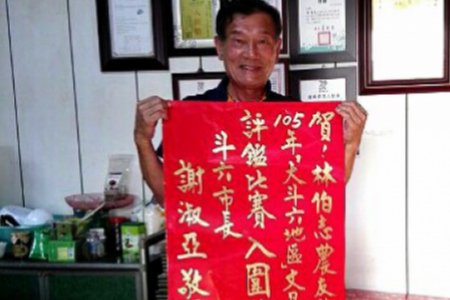 賀!林伯志農友
105年,大斗六地區文旦
評鑑比賽入圍
斗六市長
謝淑亞敬